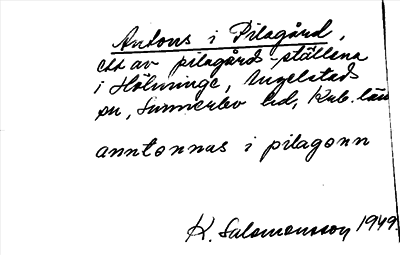 Antons i Pilagård,
ett av pilagård-ställena
i Hölminge, Ingelstad
sn, Sunnerbo hd, Krb. län
anntonnas i pilagonn
K. Salomonsson 1949.